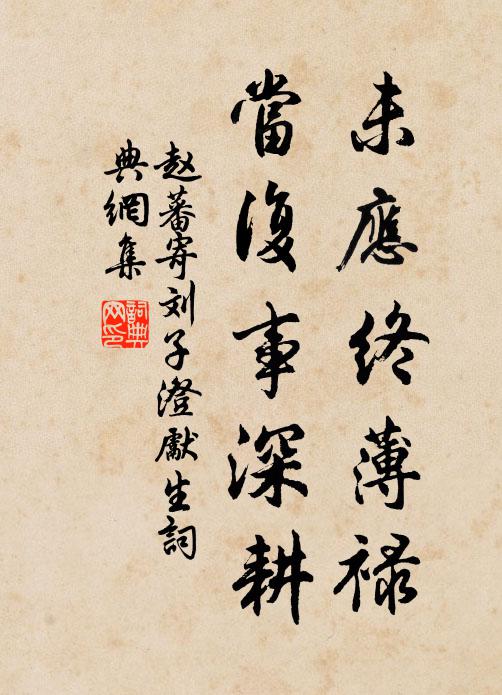 未應終薄祿
當復事深耕
赵蕃寄刘子澄獻生詞
典網集
詞典网印